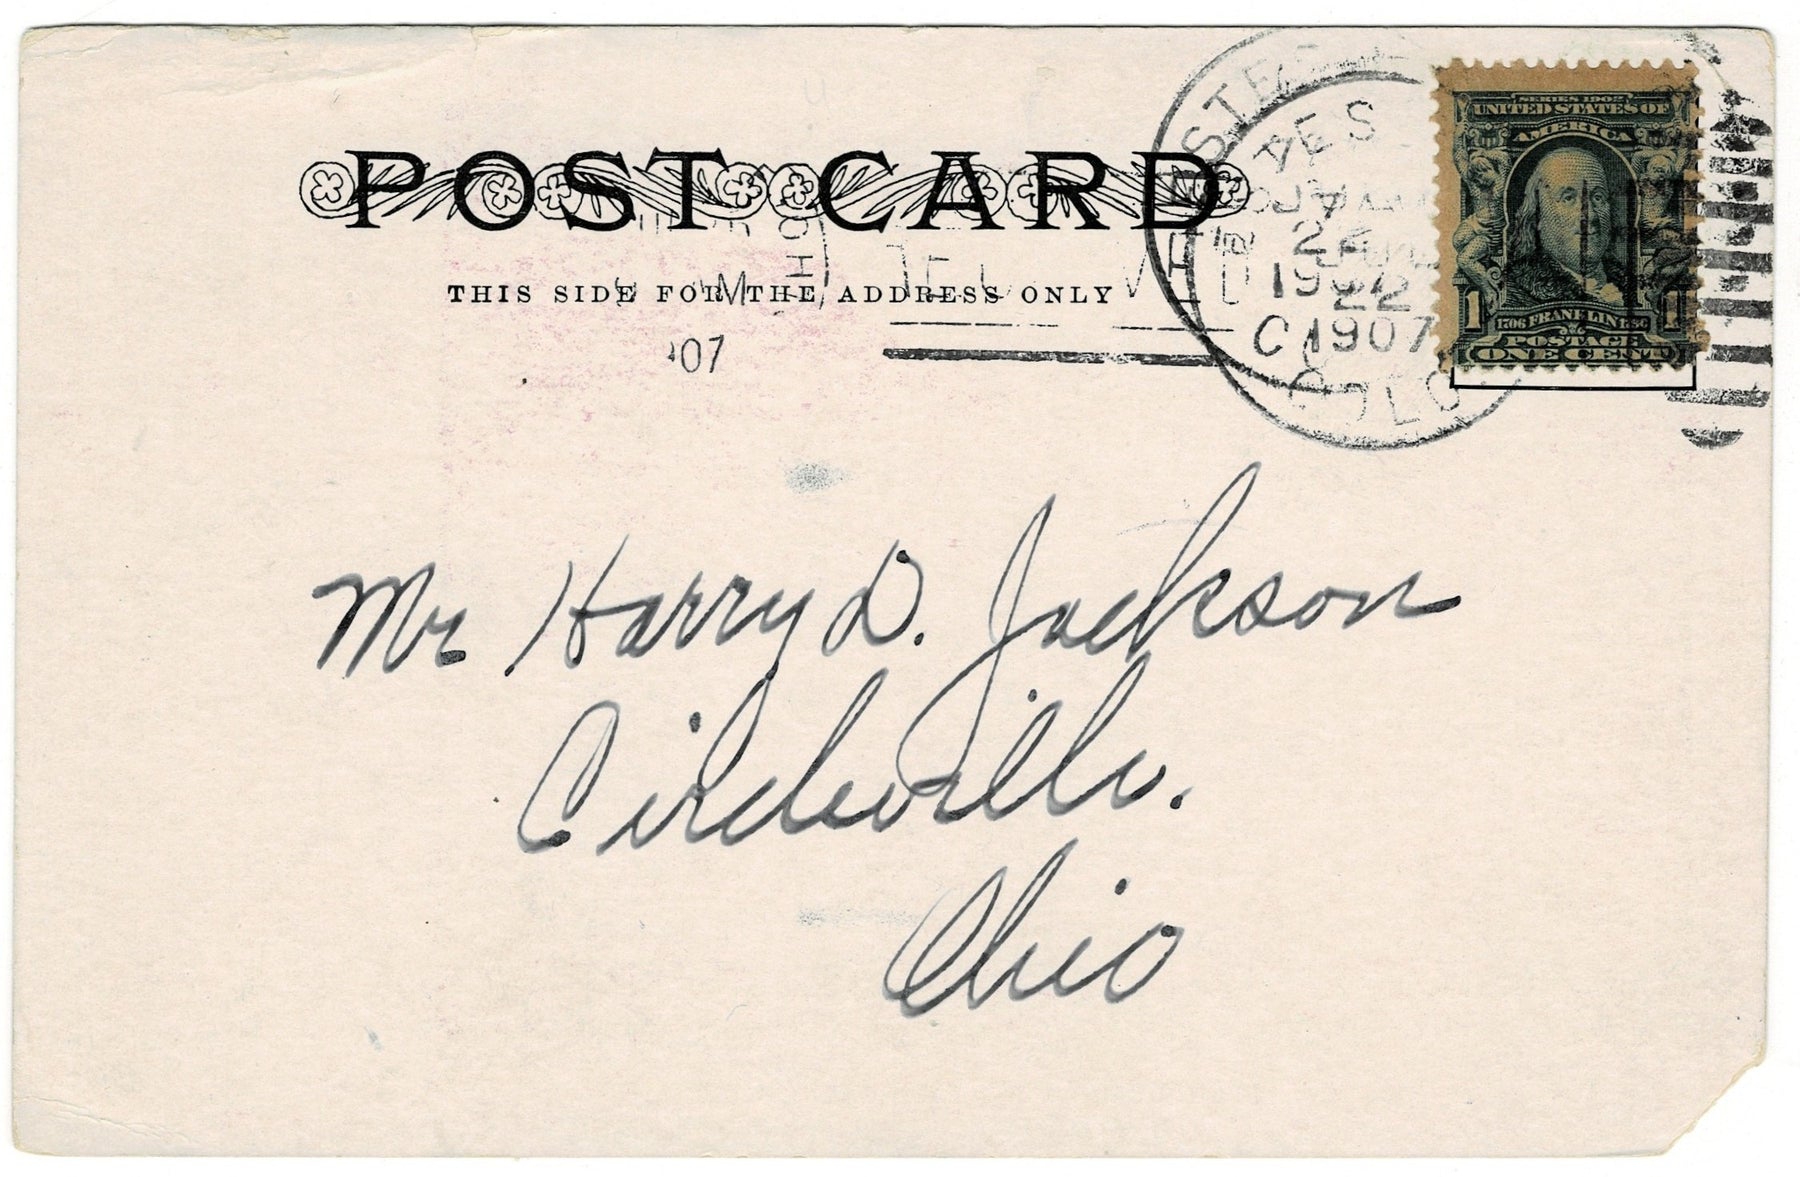 POST CARD
THIS SIDE FOR THE ADDRESS ONLY
'07
JAN
22
1907
1907
SERIES 1902
UNITED STATES OF
AMERICA
1 1706 FRANKLIN 1790 1
POSTAGE
ONE CENT
Mr Harry D. Jackson
Circleville.
Ohio